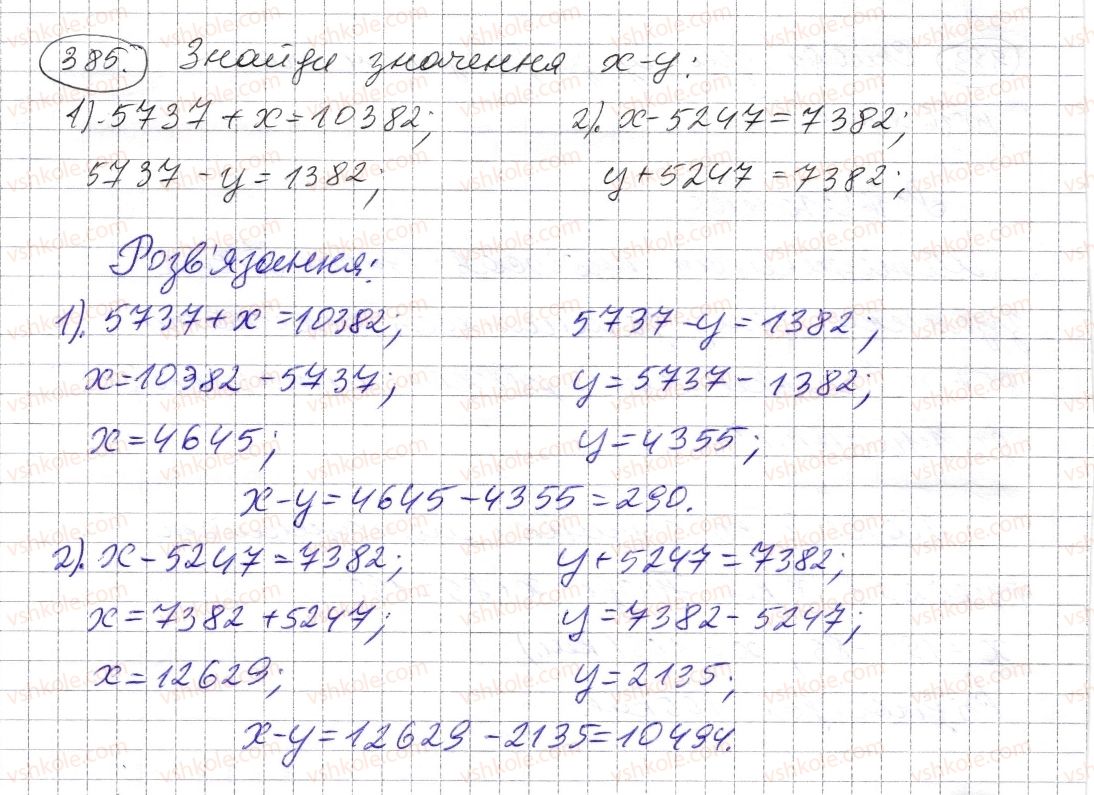 385. Знайди значення x-y:
1). 5737 + x = 10382; 2). x - 5247 = 7382;
5737 - y = 1382; y + 5247 = 7382;
Розв'язання:
1). 5737 + x = 10382; 5737 - y = 1382;
x = 10382 - 5737; y = 5737 - 1382;
x = 4645; y = 4355;
x - y = 4645 - 4355 = 290.
2). x - 5247 = 7382; y + 5247 = 7382;
x = 7382 + 5247; y = 7382 - 5247;
x = 12629; y = 2135;
x - y = 12629 - 2135 = 10494.
vshkole.com